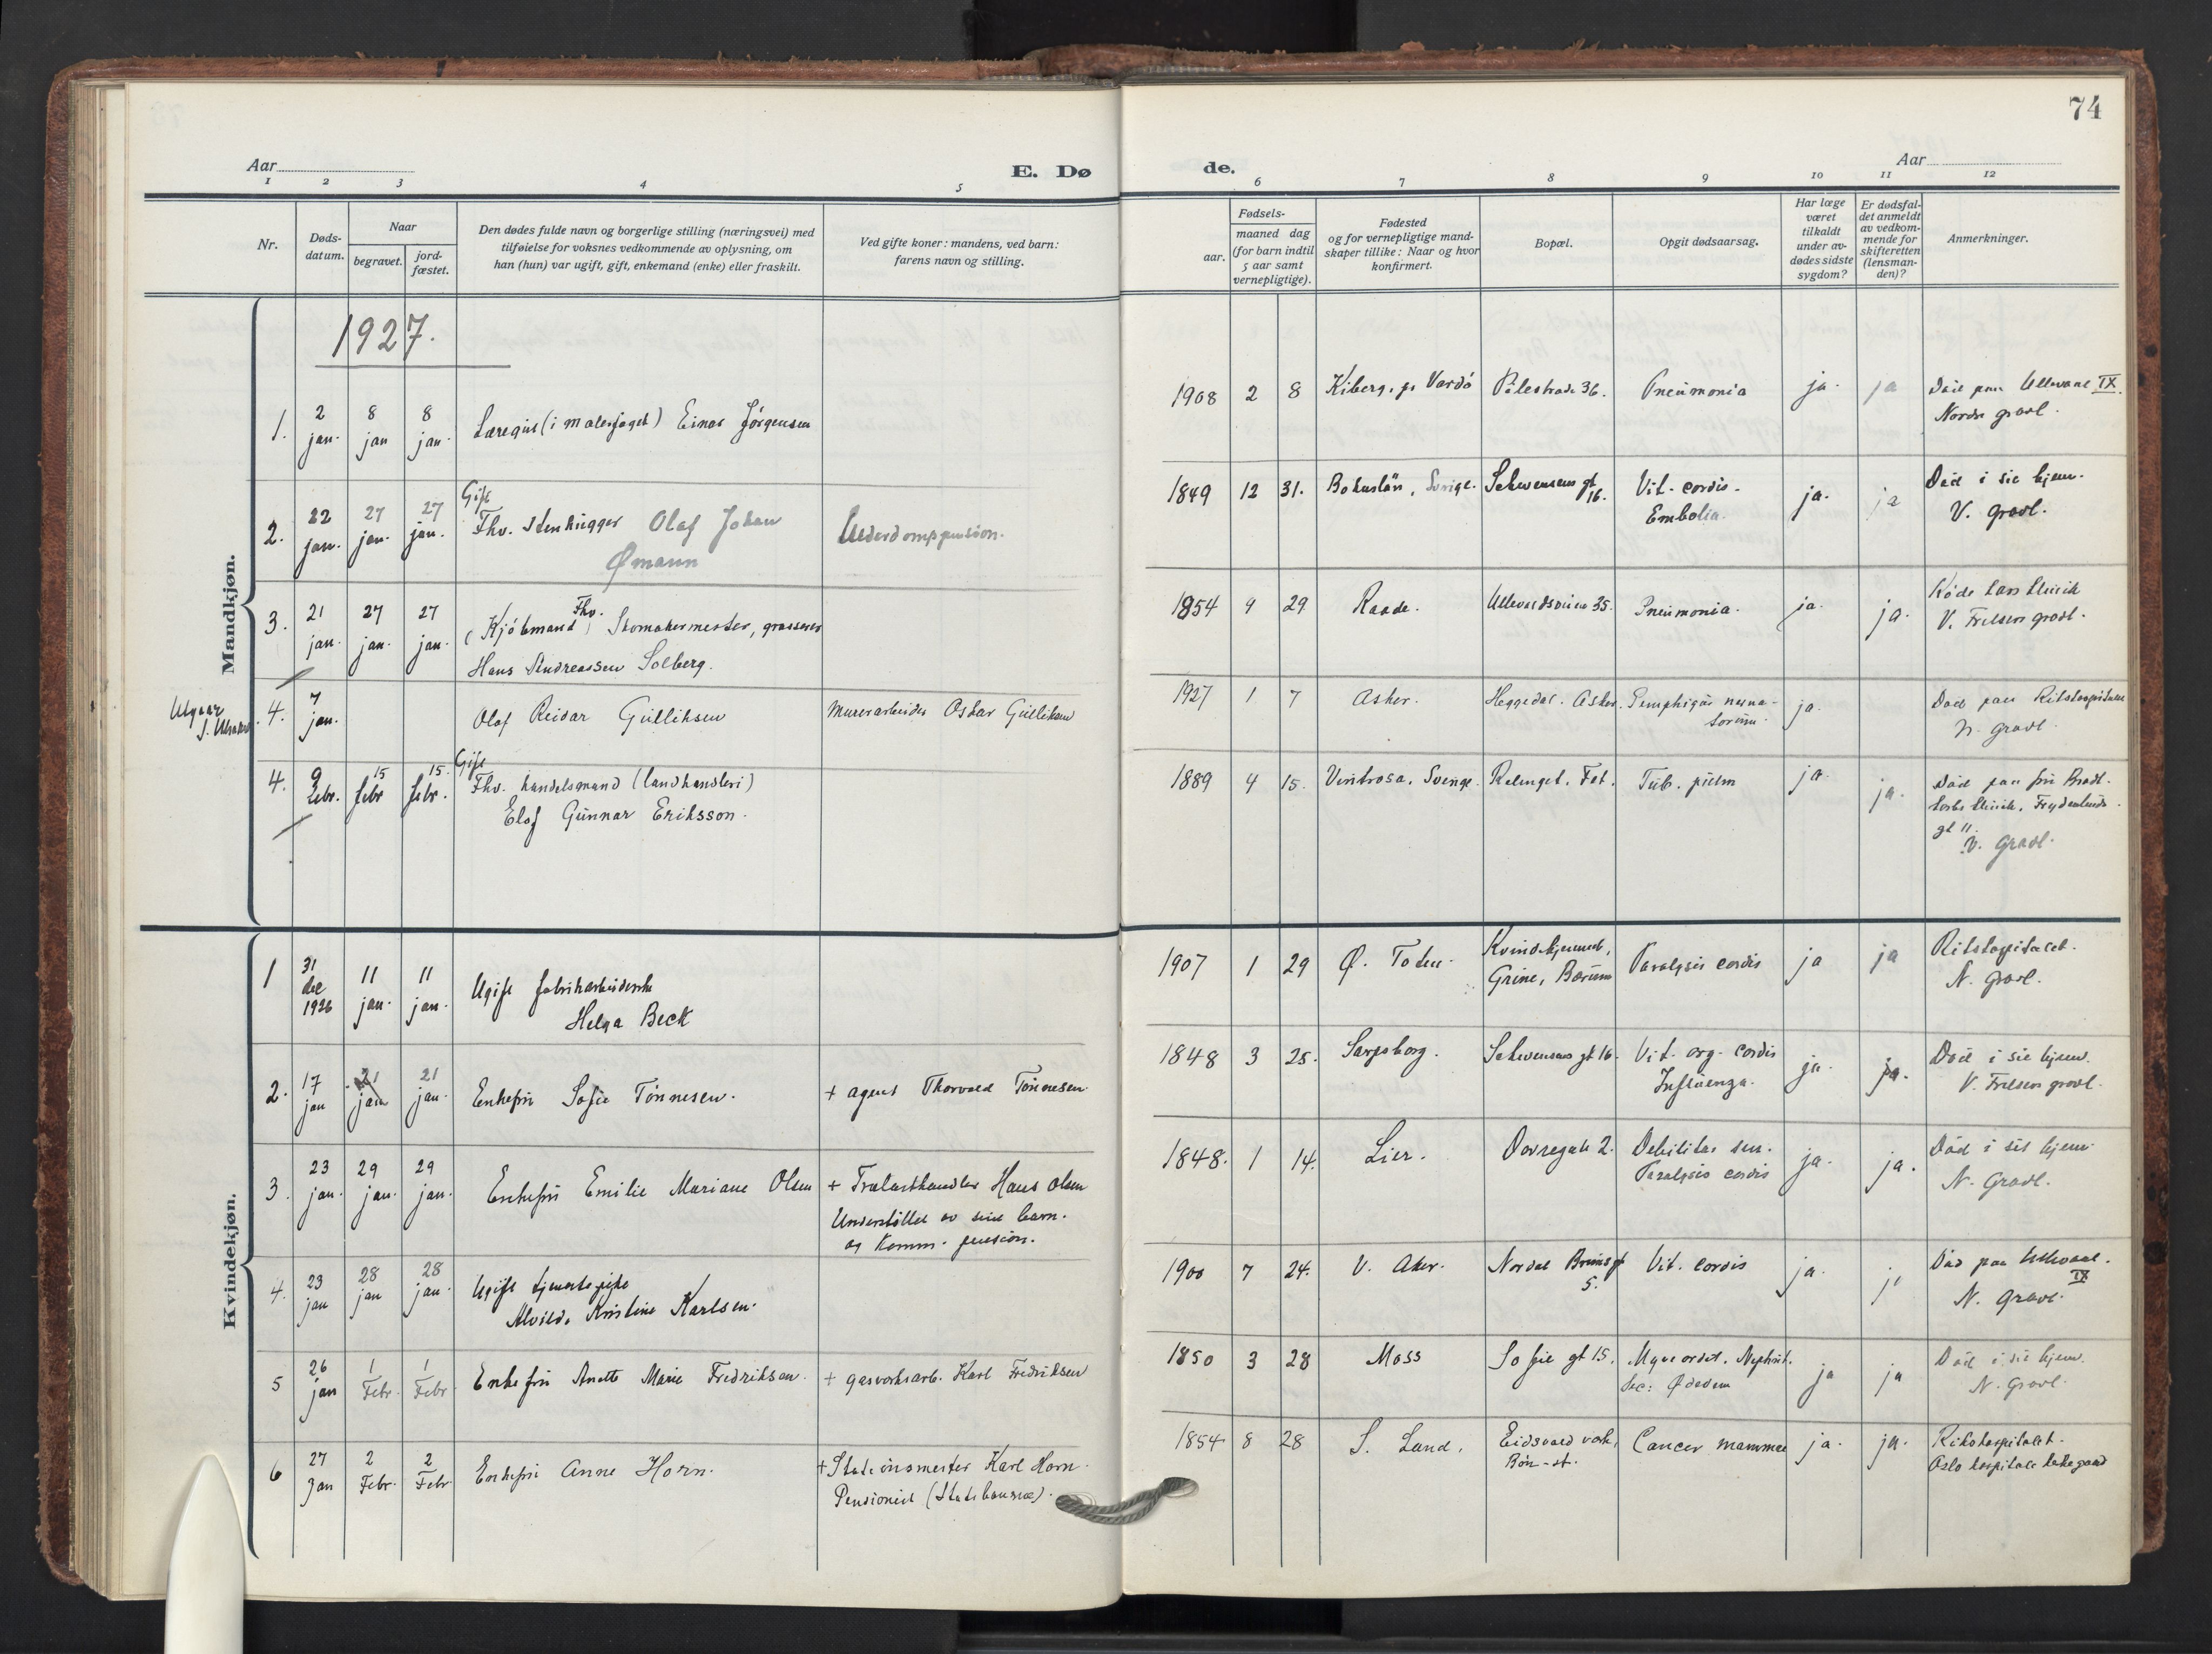 74
Aar
E. Dø
de.
Aar
1 2 3 4 5 6 7 8 9 10 11 12
Nr.
Døds-
datum.
Naar
begravet.
jord-
fæstet.
Den dødes fulde navn og borgerlige stilling (næringsvei) med
tilføielse for voksnes vedkommende av oplysning, om
han (hun) var ugift, gift, enkemand (enke) eller fraskilt.
Ved gifte koner: mandens, ved barn:
farens navn og stilling.
Fødsels-
aar.
maaned dag
(for barn indtil
5 aar samt
vernepligtige).
Fødested
og for vernepligtige mand-
skaper tillike: Naar og hvor
konfirmert.
Bopæl.
Opgit dødsaarsag.
Har læge
været
tilkaldt
under av-
dødes sidste
sygdom?
Er dødsfal-
det anmeldt
av vedkom-
mende for
skifteretten
(lensman-
den)?
Anmerkninger.
Mandkjøn.
1927.
1. 2 jan. 8 jan 8 jan. Læregut (i malerfaget) Einar Jørgensen
1908 2 8 Kiberg, p. Vardö Pilestrade 36. Pneumonia ja. ja Död paa Ullevaal IX.
Nordre gravl.
2. 22 jan. 27 jan. 27 jan. Gift
Fhv. Stenhugger Olaf Johan
Ømann
Alderdomspension.
1849 12 31. Bohuslän, Sverige. Schwensens gt 16. Vit. cordis.
Embolia. ja. ja Död i sit hjem.
V. gravl.
3. 21 jan. 27 jan. 27 jan. (Kjöbmand) Fhv. Skomakermester, grosserer
Hans Andreassen Solberg.
1854 9 29 Raade. Ullevaalsveien 35. Pneumonia. ja. ja. Röde Kors Klinik
V. Frelsers gravl.
4. 7 jan. Olaf Reidar Gulliksen Murerarbeider Oskar Gulliksen
1927 1 7 Asker. Heggedal. Asker. Pemphigus neona-
torum. ja. Död paa Rikshospitalet
N. gravl.
4. 9 Febr. 15 febr 15. febr. Gift
Fhv. handelsmand (landhandleri)
Elof Gunnar Eriksson.
1889 4 15. Ventrosa, Sverige. Relinget. Fet. Tub. pulm ja. ja. Död paa fru
klinik, Frydenlunds
gt 11.
V. gravl.
Kvindekjøn.
1 31 dec 1926 11 jan. 11 jan. Ugift fabrikarbeiderske
Helga Beck
1907 1 29 Ø. Toten. Kvindehjemmet,
Grine, Bærum Paralysis cordis ja ja Rikshospitalet.
N. gravl.
2. 17 jan 21 jan 21 jan. Enkefru Sofie Tönnesen. + agent Thorvald Tönnesen
1848 3 25. Sarpsborg. Schwensens gt 16. Vit. org. cordis
Influenza. ja. ja. Död i sit hjem.
V. Frelsers gravl.
3. 23 jan. 29 jan. 29 jan. Enkefru Emilie Mariane Olsen + Trælasthandler Hans Olsen
Understöttet av sine barn.
og Komm. pension.
1848. 1 14. Lier. Dovregate 2. Debilitas sen.
Paralysis cordis ja. ja. Död i sit hjem
N. Gravl.
4. 23 jan 28 jan 28 jan. Ugift tjenestepike
Alvilde Kristine Karlsen.
1900 7 24. V. Aker. Nordal Bruns gt
5. Vit. cordis ja. j. Död paa Ullevaal.
IX
N. Gravl.
5 26 jan 1 Febr. 1 Febr. Enkefru Anette Marie Fredriksen. + gasverksarb. Karl Fredriksen
1850 3 28 Moss Sofie gt 15. Myocardit. Nephrit.
Sec: Ødedem ja ja Död i sit hjem.
N. Gravl.
6 27 jan 2 Febr. 2 Febr. Enkefru Anne Horn. + Stationsmester Karl Horn.
Pensionist (Statsbanerne).
1854 8 28 S. Land. Eidsvold verk,
Bön - st. Cancer mammae ja. ja. Rikshospitalet.
Oslo hospitals kirkegaard